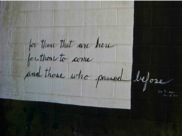 for those that are here
for those to come
and those who passed before